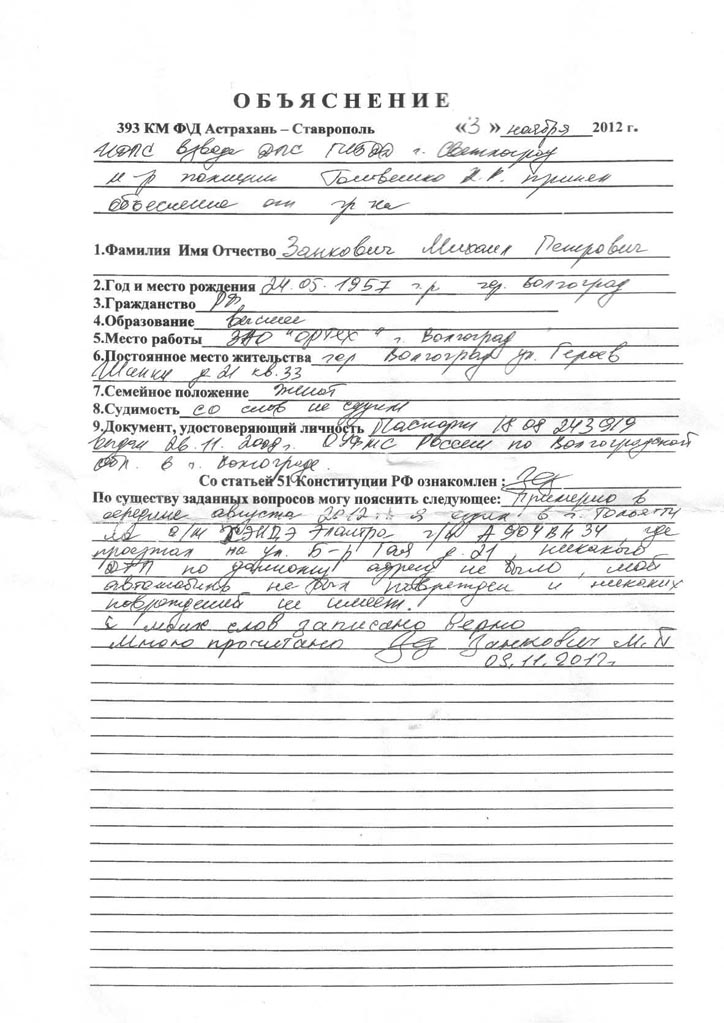 ОБЪЯСНЕНИЕ
393 КМ Ф\Д Астрахань – Ставрополь «3» ноября 2012 г.
ИДПС взвода ДПС ГИБДД г. Светлоград
м-р полиции принял
объеснение от гр-на
1.Фамилия Имя Отчество Занкович Михаил Петрович
2.Год и место рождения 24.05.1957 г.р гор. Волгоград
3.Гражданство РФ
4.Образование высшее
5.Место работы ЗАО "ОРТЕХ" г. Волгоград
6.Постоянное место жительства гор Волгоград ул. Героев
Шипки д 21 кв. 33
7.Семейное положение женат
8.Судимость со слов не судим
9.Документ, удостоверяющий личность Паспорт 18 08 243919
выдан 26.11.2008г. ОУФМС России по Волгоградской
обл. в г. Волгограде.
Со статьей 51 Конституции РФ ознакомлен :
По существу заданных вопросов могу пояснить следующее: Примерно в
середине августа 2012 г. я ездил в г. Тольятти
на а/м ХЭНДЭ Элантра г/н А904ВН34, где
проезжал на ул. Б-р Гая д. 21, никакого
ДТП по данному адресу не было, мой
автомобиль не был поврежден и никаких
повреждений не имеет.
С моих слов записано верно
Мною прочитано Занкович М.П
03.11.2012г.